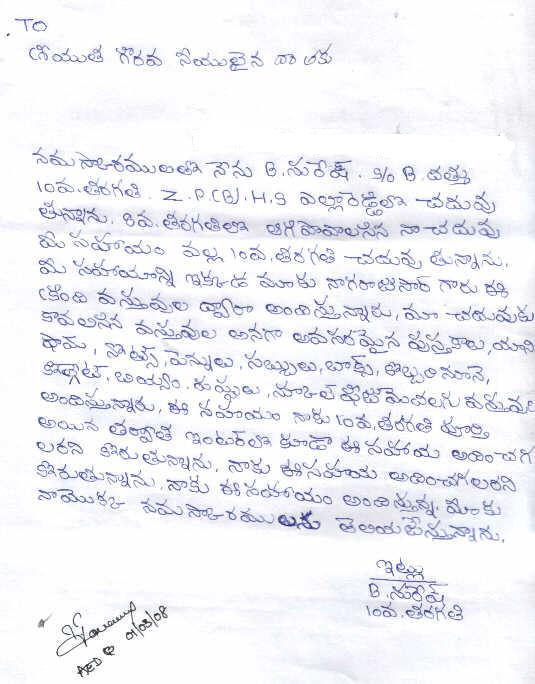 TO
శ్రీయుత గౌరవ నీయులైన దా తకు
నమస్కారములతో నేను B. సురేష్. S/o B. దత్తు
10వ. తరగతి. Z.P.(B).H.S ఎల్లారెడ్డిలో చదువు
తున్నాను. 8వ. తరగతిలో ఆగిపోవాలసిన నా చదువు
మీ సహాయం వల్ల 10వ. తరగతి చదువు తున్నాను.
మీ సహాయాన్ని ఇక్కడ మాకు నాగరాజుసార్ గారు ఈ
క్రింది వస్తువుల ద్వారా అందిస్తున్నారు, మా చదువుకు
కావలసిన వస్తువుల అనగా అవసరమైన పుస్తకాలు, యూని
ఫామ్, నోట్స్, పెన్నులు, సబ్బులు, బాక్సు, కొబ్బరి నూనె,
కోల్గేట్, బియ్యం. దుప్పట్లు, స్కూల్ ఫీజు మొదలగు వస్తువులు
అందిస్తున్నారు, ఈ సహాయం నాకు 10వ. తరగతి పూర్తి
అయిన తర్వాత ఇంటర్‌లో కూడా ఈ సహాయ అందించగ
లరని కోరుతున్నాను, నాకు ఈ సహాయ అందించగలరని
కోరుతున్నాను, నాకు ఈ సహాయం అందిస్తున్న, మీకు
నాయొక్క నమస్కారములను తెలియజేస్తున్నాను.
ఇట్లు
B. సురేష్
10వ. తరగతి
AED @ 01/03/08